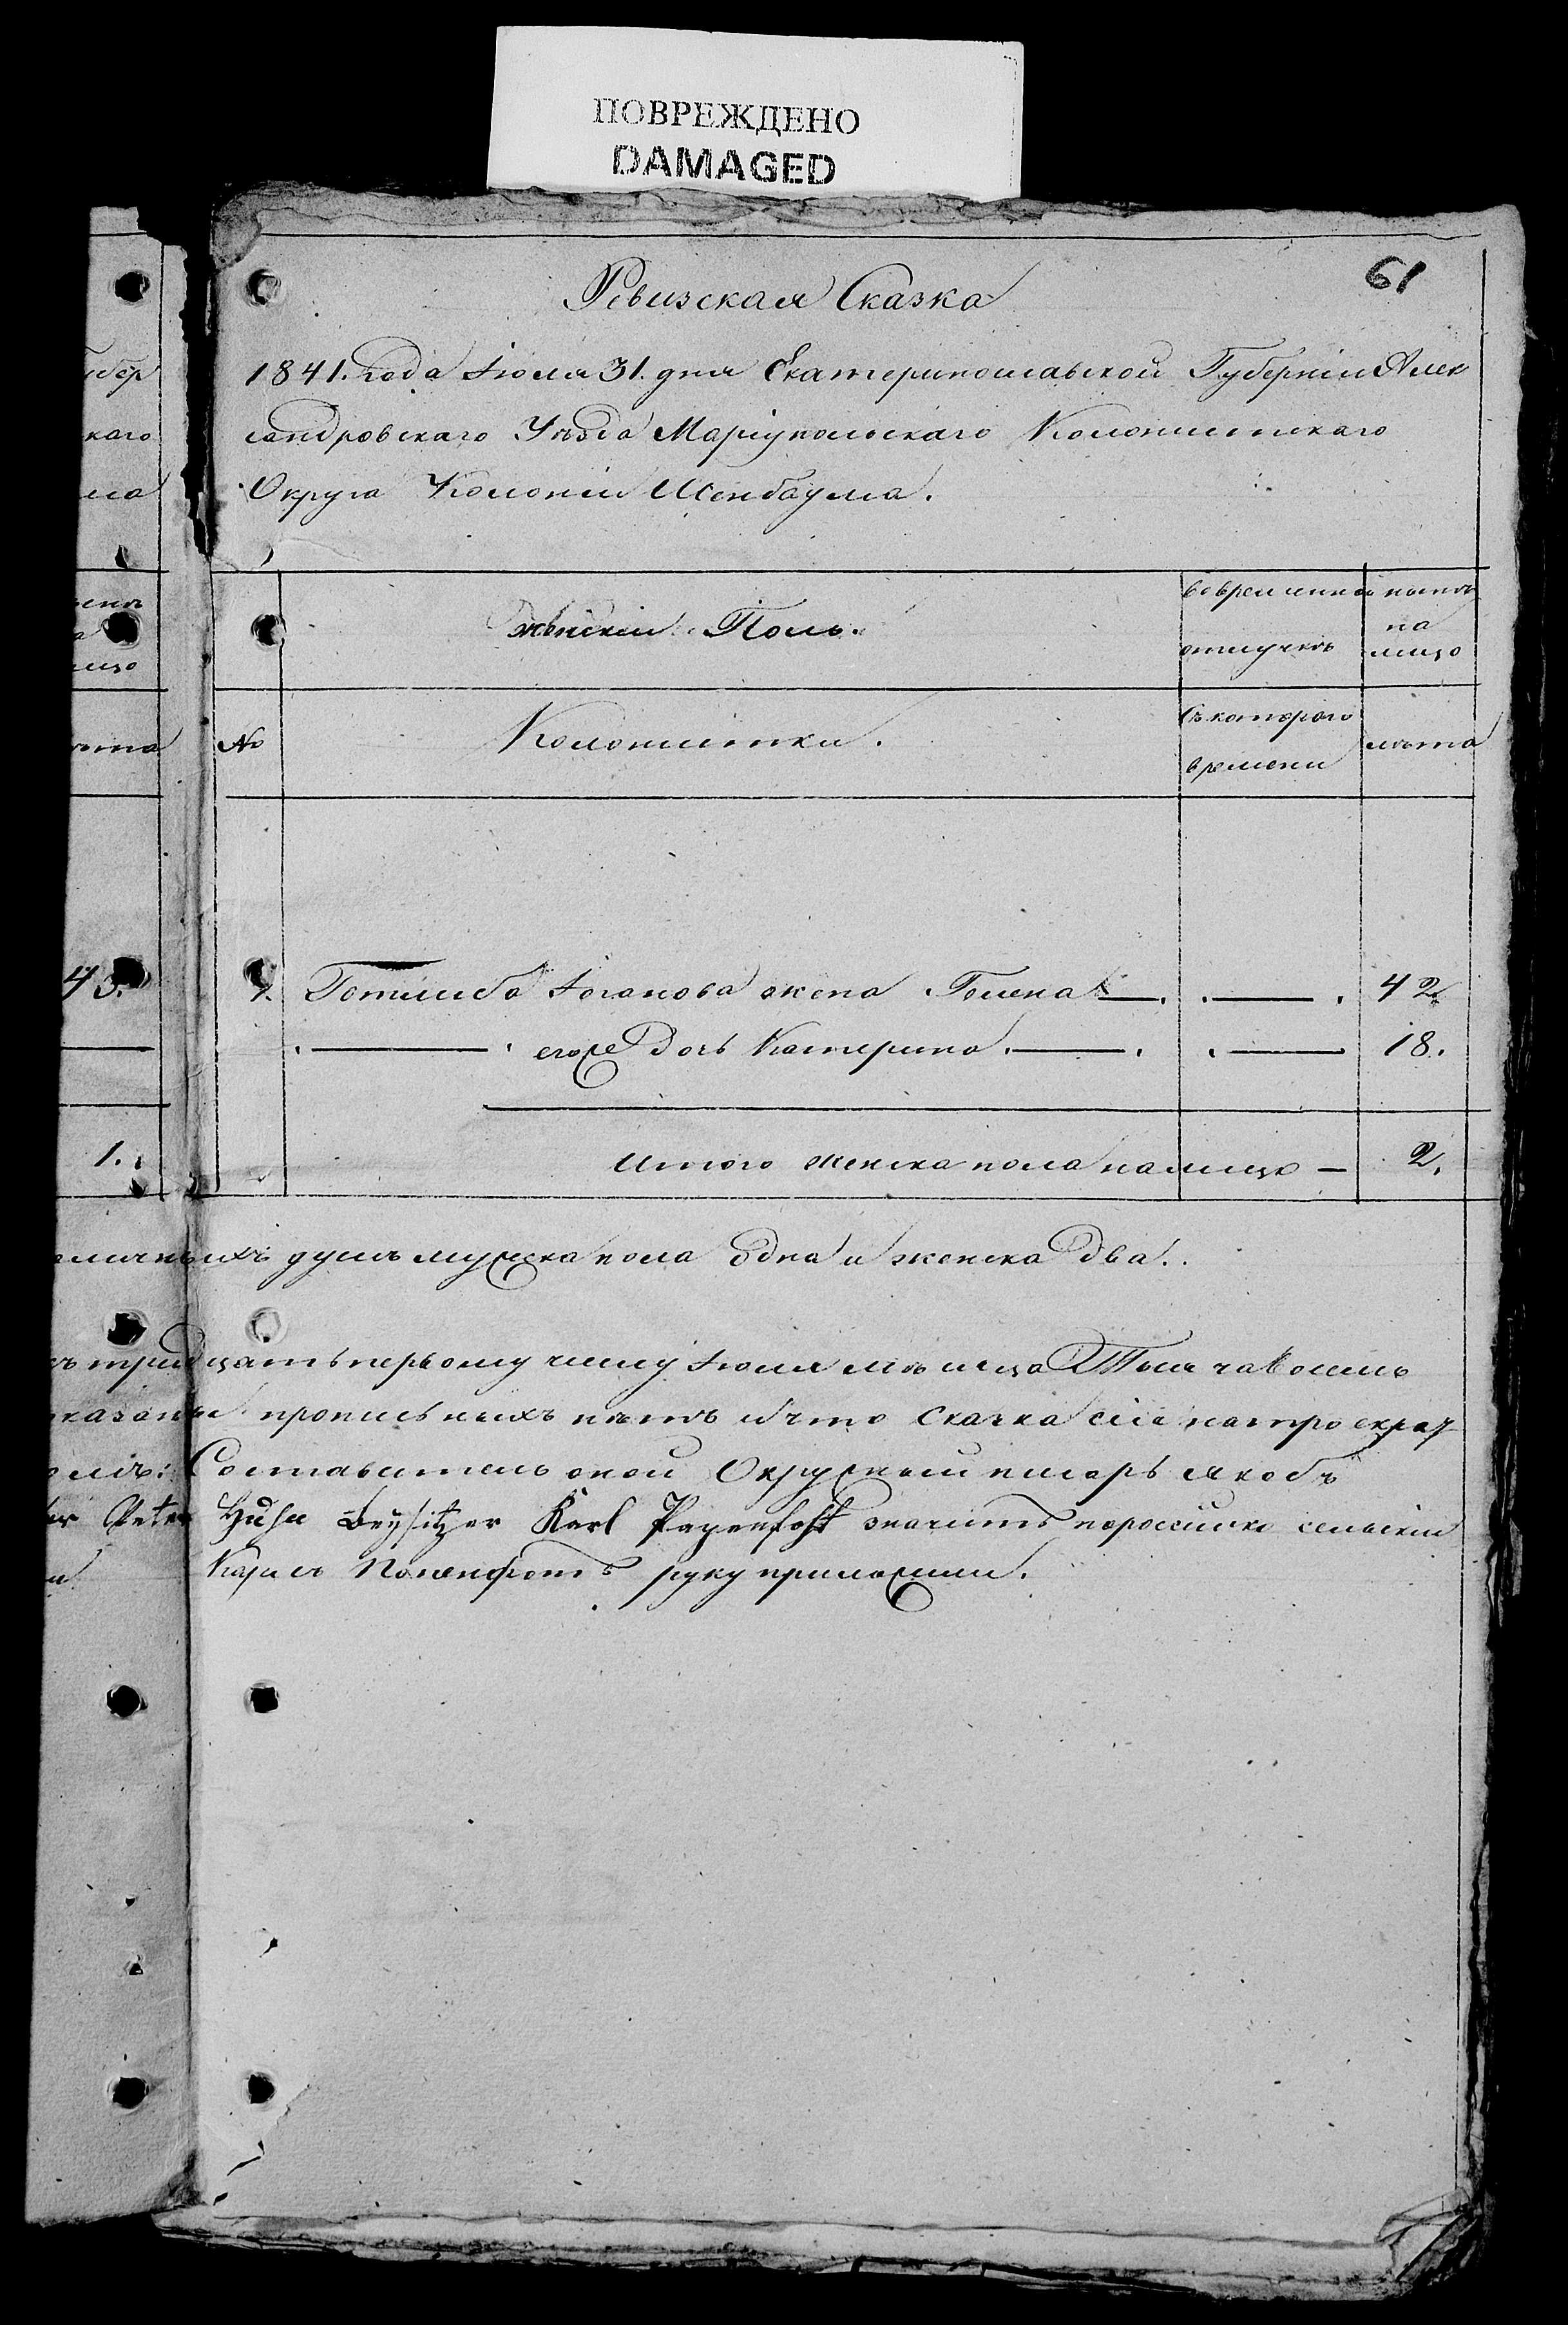 ПОВРЕЖДЕНО
DAMAGED
61
Ревизская Сказка
1841. года Іюля 31. дня Екатеринославской Губерніи Алек
сандровскаго Уѣзда Маріупольскаго Колонистскаго
Округа Колоніи Шенбаума.
женскій Полъ.
во временной
отлучкѣ
нынѣ
на
лицо
№
Колонистки.
Съ котораго
времени
лѣта
1. Готлиба Іоганова жена Гелена 42.
егоже Дочь Катерина. 18.
Итого женска пола на лицо — 2.
ихъ душъ мужска пола одна и женска два.
тридцать первому числу Іюля мѣсяца Тысяча Восемь
прописныхъ нѣтъ и что Сказка сія
Составитель оной Окружный писарь Якобъ
Peter Huhn Beysitzer Karl Papenfoht значитъ пороссийски сельскій
Карлъ Папенфотъ руку приложили.
45.
1.
каго
лицо